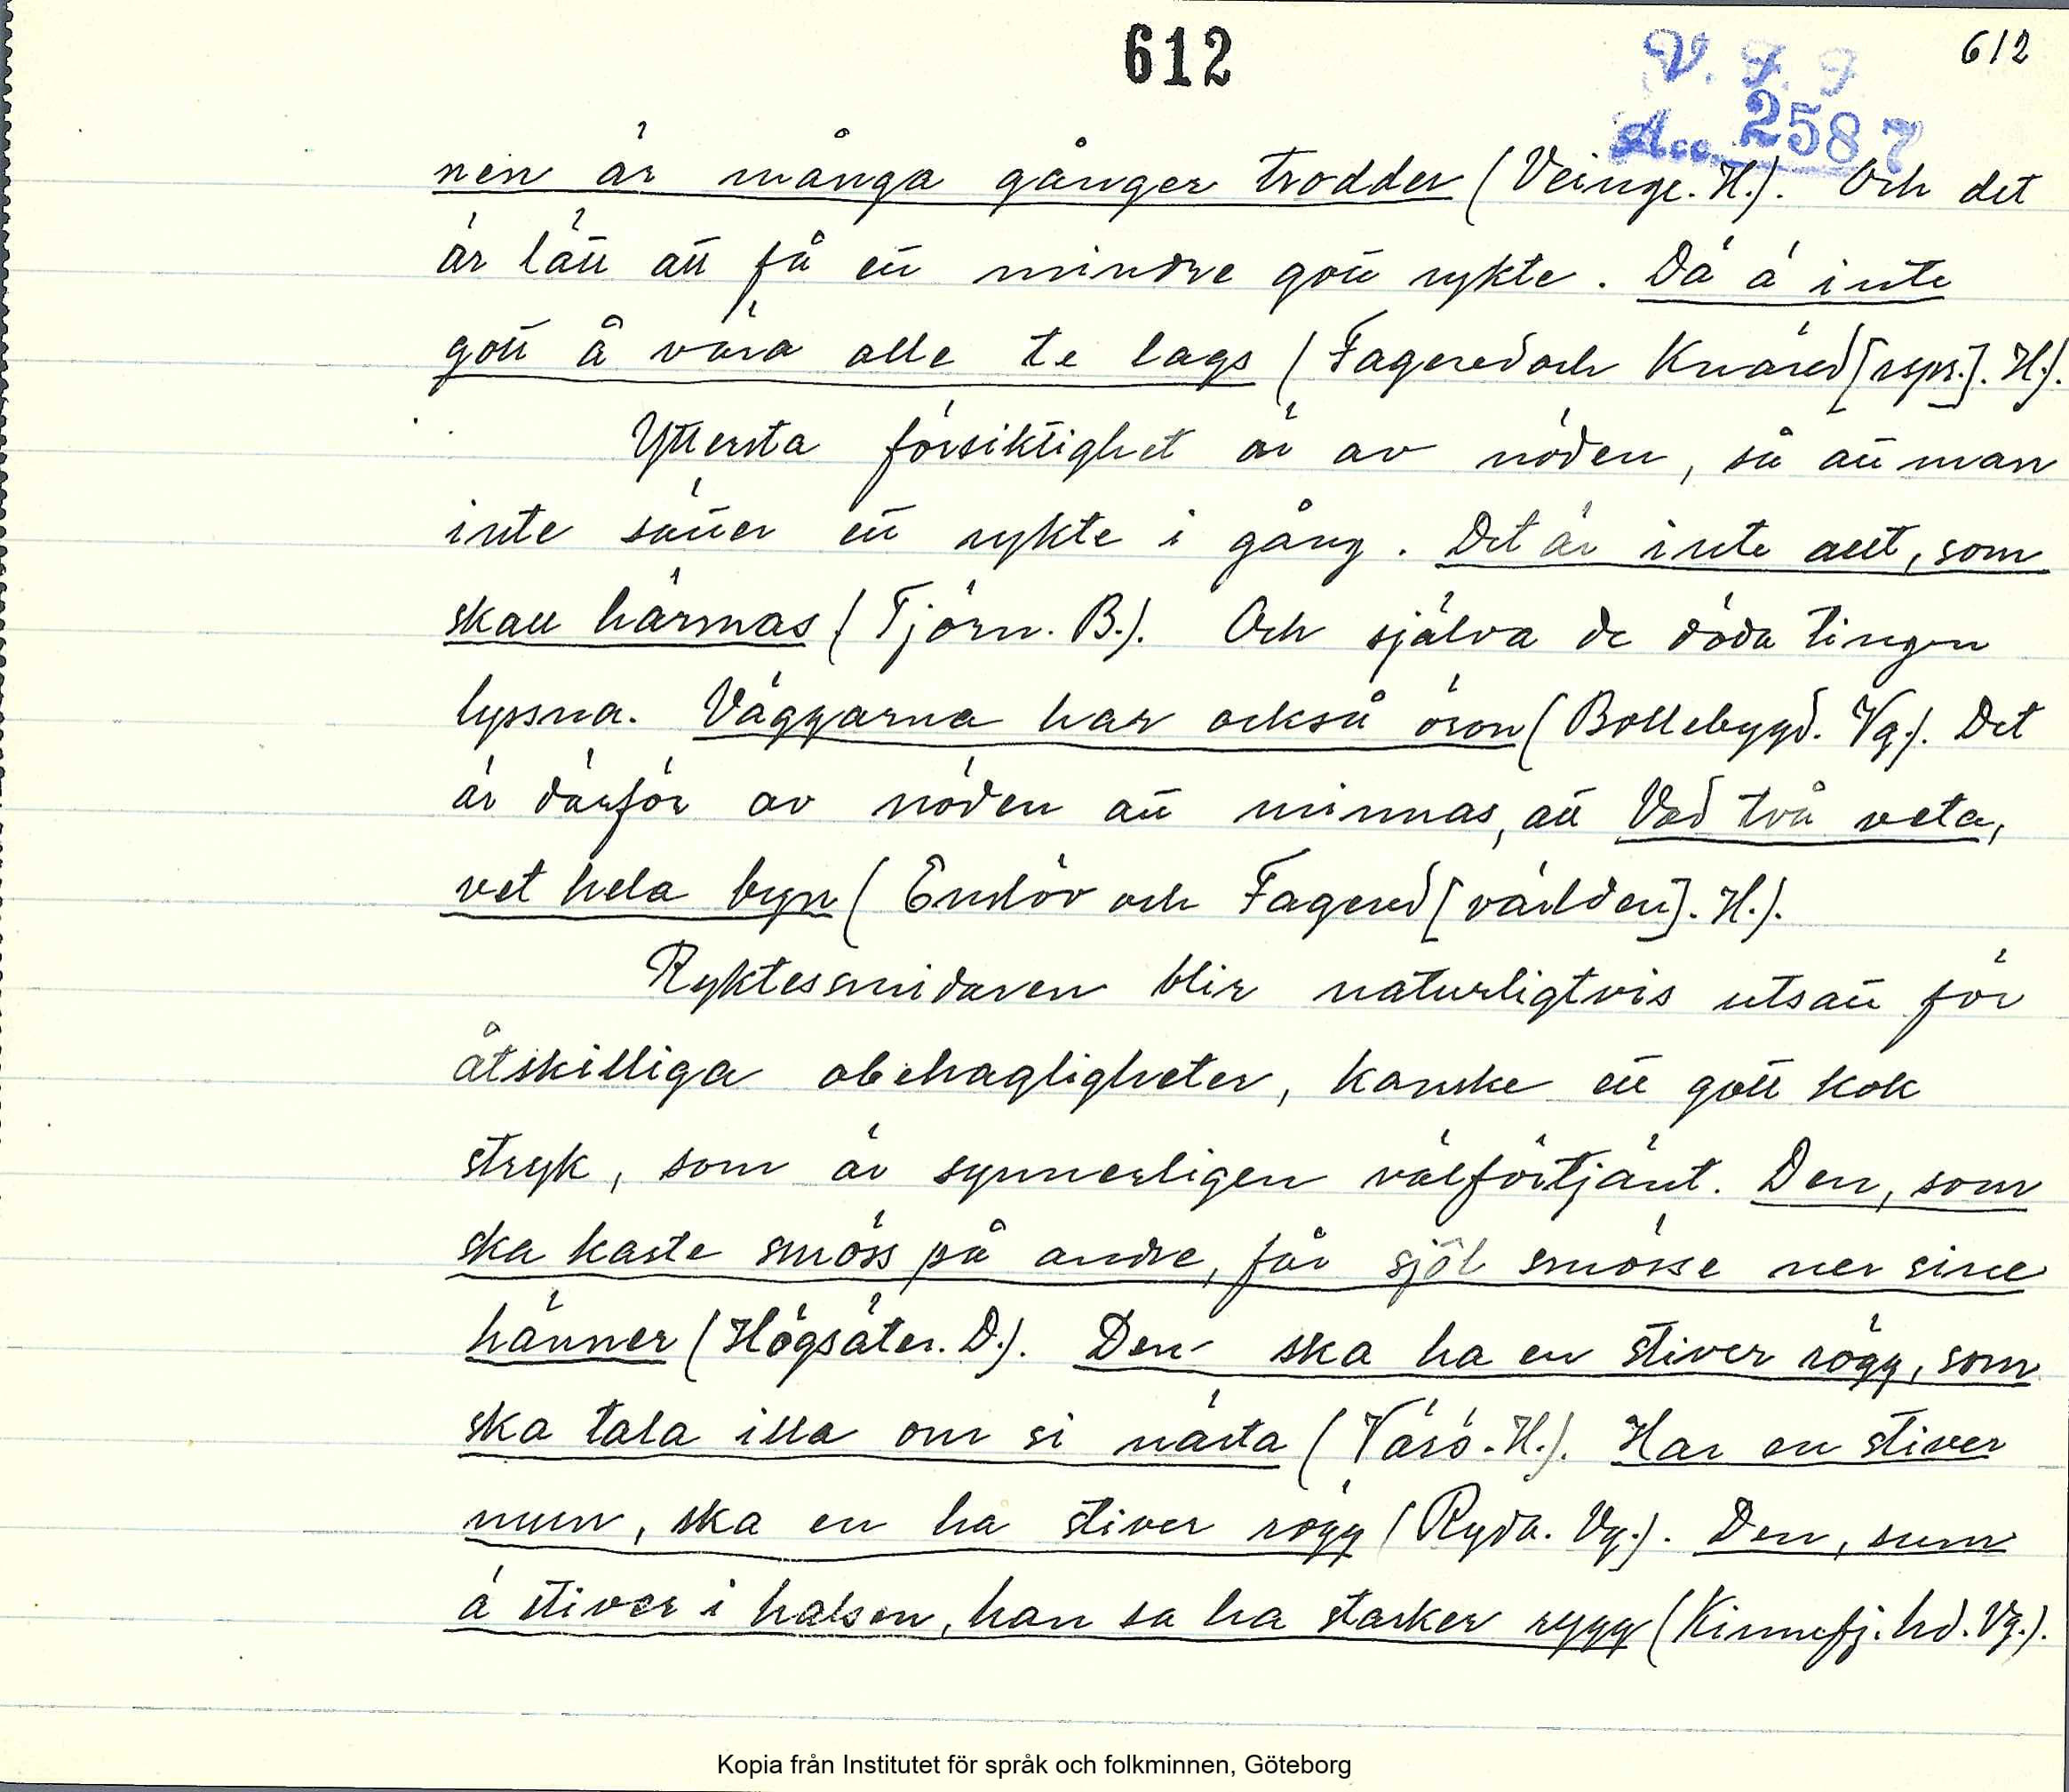 612
612
V. F. F
Acc. 2587
nen är många gånger trodder (Veinge. H.). Och det
är lätt att få ett mindre gott rykte. Dä ä inte
gott å vara alle te lags (Fagered och Knäred [rsps.]. H.).
Yttersta försiktighet är av nöden, så att man
inte sätter ett rykte i gång. Det är inte allt, som
skall härmas (Tjörn. B.). Och själva de döda tingen
lyssna. Väggarna har också öron (Bollebygd. Vg.). Det
är därför av nöden att minnas, att Vad två veta,
vet hela byn (Enslöv och Fagered [världen]. H.).
Ryktessmidaren blir naturligtvis utsatt för
åtskilliga obehagligheter, kanske ett gott kok
stryk, som är synnerligen välförtjänt. Den, som
ska kaste smöss på andre, får sjöl smösse ner sine
hänner (Högsäter. D.). Den ska ha en stiver rögg, som
ska tala illa om si nästa (Värö. H.). Har en stiver
mun, ska en ha stiver rögg (Ryda. Vg.). Den, sum
ä stiver i halsen, han sa ha starker rygg (Kinnefj. hd. Vg.).
Kopia från Institutet för språk och folkminnen, Göteborg